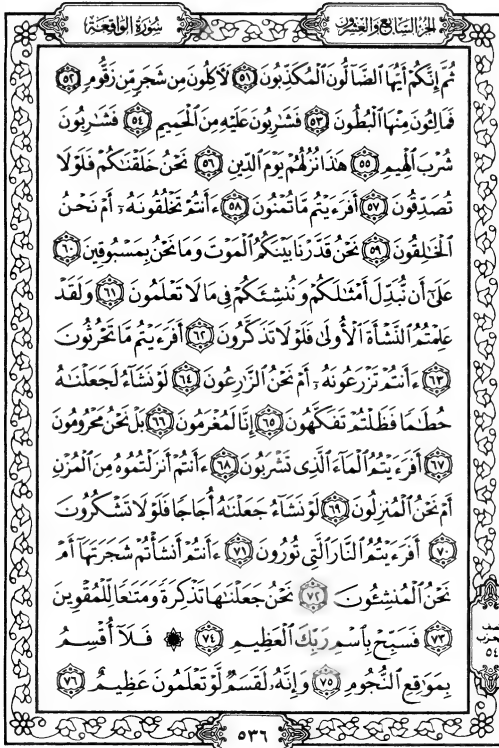 سُورَةُ الوَاقِعَةِ
الجُزْءُ السَّابِعُ وَالعِشْرُونَ
ثُمَّ إِنَّكُمْ أَيُّهَا ٱلضَّآلُّونَ ٱلْمُكَذِّبُونَ ٥١ لَأَكِلُونَ مِن شَجَرٍ مِّن زَقُّومٍ ٥٢
فَمَالِـُٔونَ مِنْهَا ٱلْبُطُونَ ٥٣ فَشَٰرِبُونَ عَلَيْهِ مِنَ ٱلْحَمِيمِ ٥٤ فَشَٰرِبُونَ
شُرْبَ ٱلْهِيمِ ٥٥ هَٰذَا نُزُلُهُمْ يَوْمَ ٱلدِّينِ ٥٦ نَحْنُ خَلَقْنَٰكُمْ فَلَوْلَا
تُصَدِّقُونَ ٥٧ أَفَرَءَيْتُم مَّا تُمْنُونَ ٥٨ ءَأَنتُمْ تَخْلُقُونَهُۥٓ أَمْ نَحْنُ
ٱلْخَٰلِقُونَ ٥٩ نَحْنُ قَدَّرْنَا بَيْنَكُمُ ٱلْمَوْتَ وَمَا نَحْنُ بِمَسْبُوقِينَ ٦٠
عَلَىٰٓ أَن نُّبَدِّلَ أَمْثَٰلَكُمْ وَنُنشِئَكُمْ فِى مَا لَا تَعْلَمُونَ ٦١ وَلَقَدْ
عَلِمْتُمُ ٱلنَّشْأَةَ ٱلْأُولَىٰ فَلَوْلَا تَذَكَّرُونَ ٦٢ أَفَرَءَيْتُم مَّا تَحْرُثُونَ
٦٣ ءَأَنتُمْ تَزْرَعُونَهُۥٓ أَمْ نَحْنُ ٱلزَّٰرِعُونَ ٦٤ لَوْ نَشَآءُ لَجَعَلْنَٰهُ
حُطَٰمًا فَظَلْتُمْ تَفَكَّهُونَ ٦٥ إِنَّا لَمُغْرَمُونَ ٦٦ بَلْ نَحْنُ مَحْرُومُونَ
٦٧ أَفَرَءَيْتُمُ ٱلْمَآءَ ٱلَّذِى تَشْرَبُونَ ٦٨ ءَأَنتُمْ أَنزَلْتُمُوهُ مِنَ ٱلْمُزْنِ
أَمْ نَحْنُ ٱلْمُنزِلُونَ ٦٩ لَوْ نَشَآءُ جَعَلْنَٰهُ أُجَاجًا فَلَوْلَا تَشْكُرُونَ
٧٠ أَفَرَءَيْتُمُ ٱلنَّارَ ٱلَّتِى تُورُونَ ٧١ ءَأَنتُمْ أَنشَأْتُمْ شَجَرَتَهَآ أَمْ
نَحْنُ ٱلْمُنشِـُٔونَ ٧٢ نَحْنُ جَعَلْنَٰهَا تَذْكِرَةً وَمَتَٰعًا لِّلْمُقْوِينَ
٧٣ فَسَبِّحْ بِٱسْمِ رَبِّكَ ٱلْعَظِيمِ ٧٤ ۞ فَلَآ أُقْسِمُ
بِمَوَٰقِعِ ٱلنُّجُومِ ٧٥ وَإِنَّهُۥ لَقَسَمٌ لَّوْ تَعْلَمُونَ عَظِيمٌ ٧٦
٥٤
٥٣٦